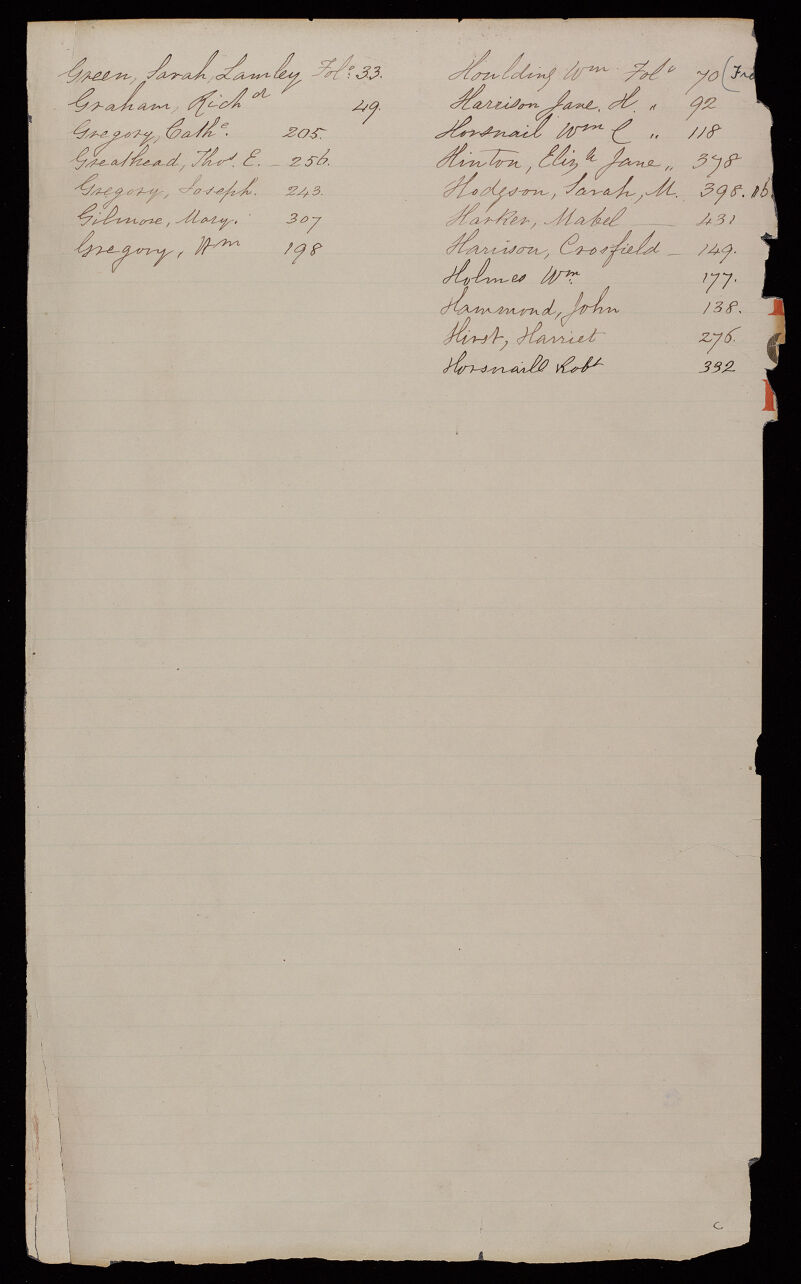 Green, Sarah, Lamley Folo. 33.
Graham, Richd 49.
Gregory, Cathe. 205.
Greathead, Thos. E. - 256.
Gregory, Joseph. 243.
Gilmore, Mary. 307
Gregory, Wm 198
Houlding Wm Folo 70 (
Harrison Jane. H. " 92
Horsnail Wm C " 118
Hinton, Elizh Jane " 378
Hodgson, Sarah, M. 398.
Harker, Mabel 431
Harrison, Crosfield - 149.
Holmes Wm. 177.
Hammond, John 138.
Hirst, Harriet 276.
Horsnaill Robt 332
C